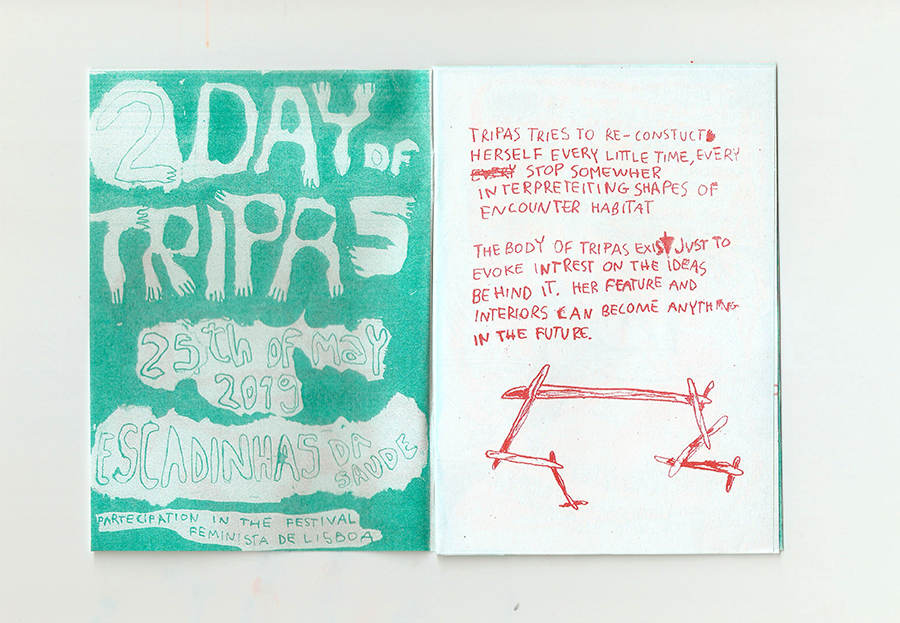 2 DAY OF
TRIPAS
25th OF MAY
2019
ESCADINHAS DA
SAUDE
PARTECIPATION IN THE FESTIVAL
FEMINISTA DE LISBOA
TRIPAS TRIES TO RE-CONSTUCT
HERSELF EVERY LITTLE TIME, EVERY
STOP SOMEWHER
INTERPRETEITING SHAPES OF
ENCOUNTER HABITAT
THE BODY OF TRIPAS EXIST JUST TO
EVOKE INTREST ON THE IDEAS
BEHIND IT. HER FEATURE AND
INTERIORS CAN BECOME ANYTHING
IN THE FUTURE.